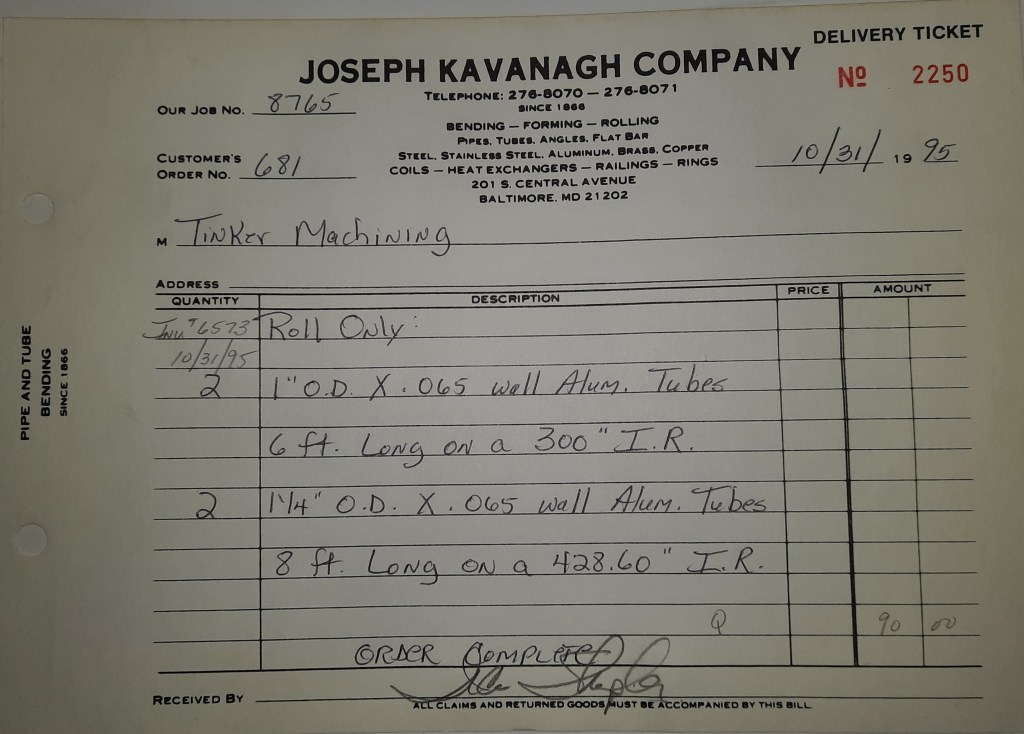 DELIVERY TICKET
JOSEPH KAVANAGH COMPANY
Nº 2250
TELEPHONE: 276-8070 — 276-8071
SINCE 1866
OUR JOB NO. 8765
BENDING — FORMING — ROLLING
PIPES, TUBES, ANGLES, FLAT BAR
STEEL, STAINLESS STEEL, ALUMINUM, BRASS, COPPER
COILS — HEAT EXCHANGERS — RAILINGS — RINGS
201 S. CENTRAL AVENUE
BALTIMORE, MD 21202
CUSTOMER'S
ORDER NO. 681
10/31/ 19 95
M Tinker Machining
ADDRESS
QUANTITY DESCRIPTION PRICE AMOUNT
Inv # 6573 Roll Only:
10/31/95
2 1" O.D. X .065 wall Alum. Tubes
6 ft. Long on a 300" I.R.
2 1 1/4" O.D. X .065 wall Alum. Tubes
8 ft. Long on a 428.60" I.R.
Q 90 00
ORDER COMPLETE
RECEIVED BY
ALL CLAIMS AND RETURNED GOODS MUST BE ACCOMPANIED BY THIS BILL
PIPE AND TUBE
BENDING
SINCE 1866